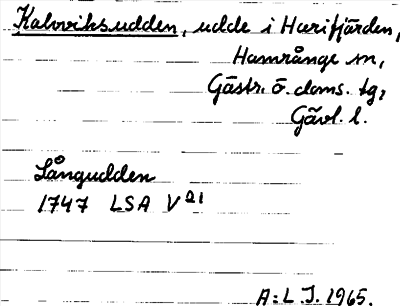 Kalvviksudden, udde i Harifjärden,
Hamrånge sn,
Gästr. ö. doms. tg,
Gävl. l.
Långudden
1747 LSA V 21
A:L J. 1965.